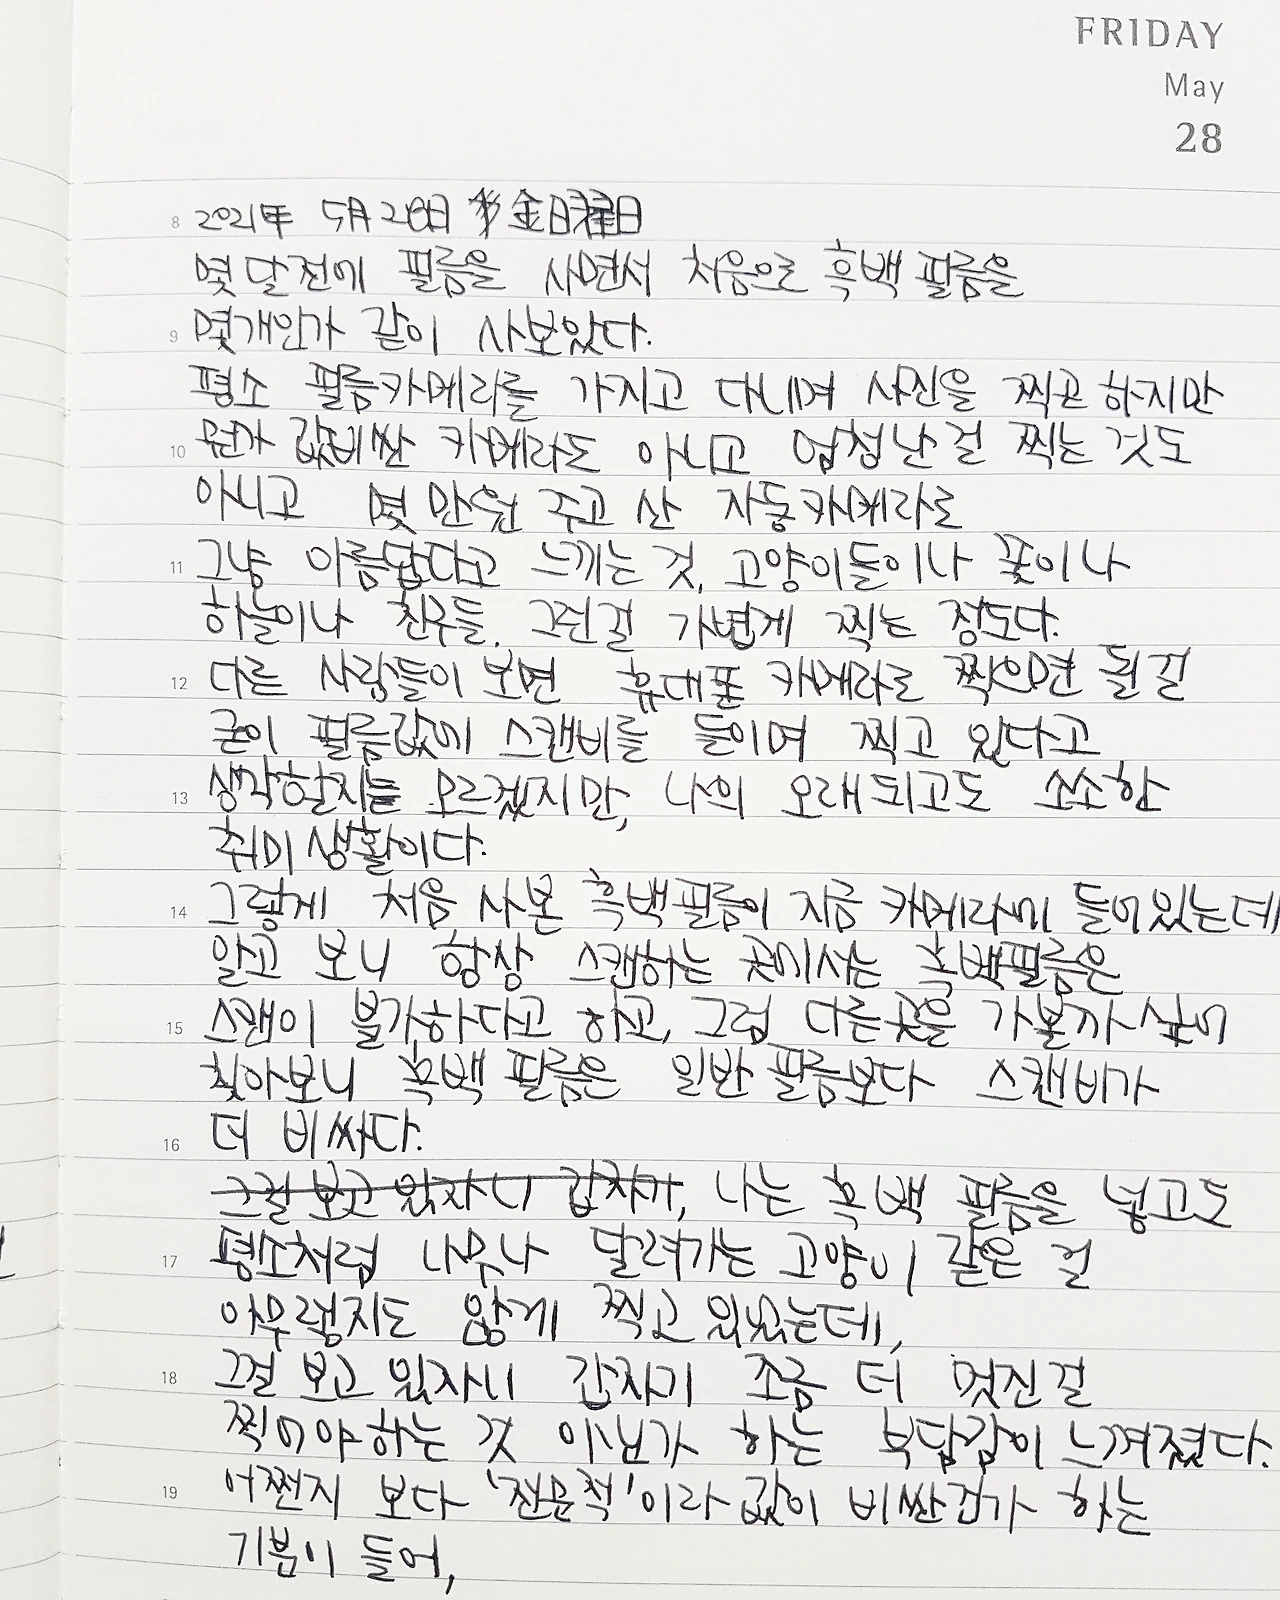 FRIDAY
May
28
8 2021年 5月 28日 金曜日
몇 달 전에 필름을 사면서 처음으로 흑백 필름을
9 몇개인가 같이 사보았다.
평소 필름카메라를 가지고 다니며 사진을 찍곤 하지만
10 뭔가 값비싼 카메라도 아니고 엄청난 걸 찍는 것도
아니고 몇 만원 주고 산 자동카메라로
11 그냥 아름답다고 느끼는 것, 고양이들이나 꽃이나
하늘이나 친구들, 그런걸 가볍게 찍는 정도다.
12 다른 사람들이 보면 휴대폰 카메라로 찍으면 될 걸
굳이 필름값에 스캔비를 들이며 찍고 있다고
13 생각할지는 모르겠지만, 나의 오래되고도 소소한
취미 생활이다.
14 그렇게 처음 사본 흑백필름이 지금 카메라에 들어있는데
알고 보니 항상 스캔하는 곳에서는 흑백필름은
15 스캔이 불가하다고 하고, 그럼 다른곳을 가볼까 싶어
찾아보니 흑백 필름은 일반 필름보다 스캔비가
16 더 비싸다.
그걸 보고 있자니 갑자기, 나는 흑백 필름을 넣고도
17 평소처럼 나무나 달려가는 고양이 같은 걸
아무렇지도 않게 찍고 있었는데,
18 그걸 보고 있자니 갑자기 조금 더 멋진 걸
찍어야 하는 것 아닌가 하는 부담감이 느껴졌다.
19 어쩐지 보다 '전문적'이라 값이 비싼건가 하는
기분이 들어,